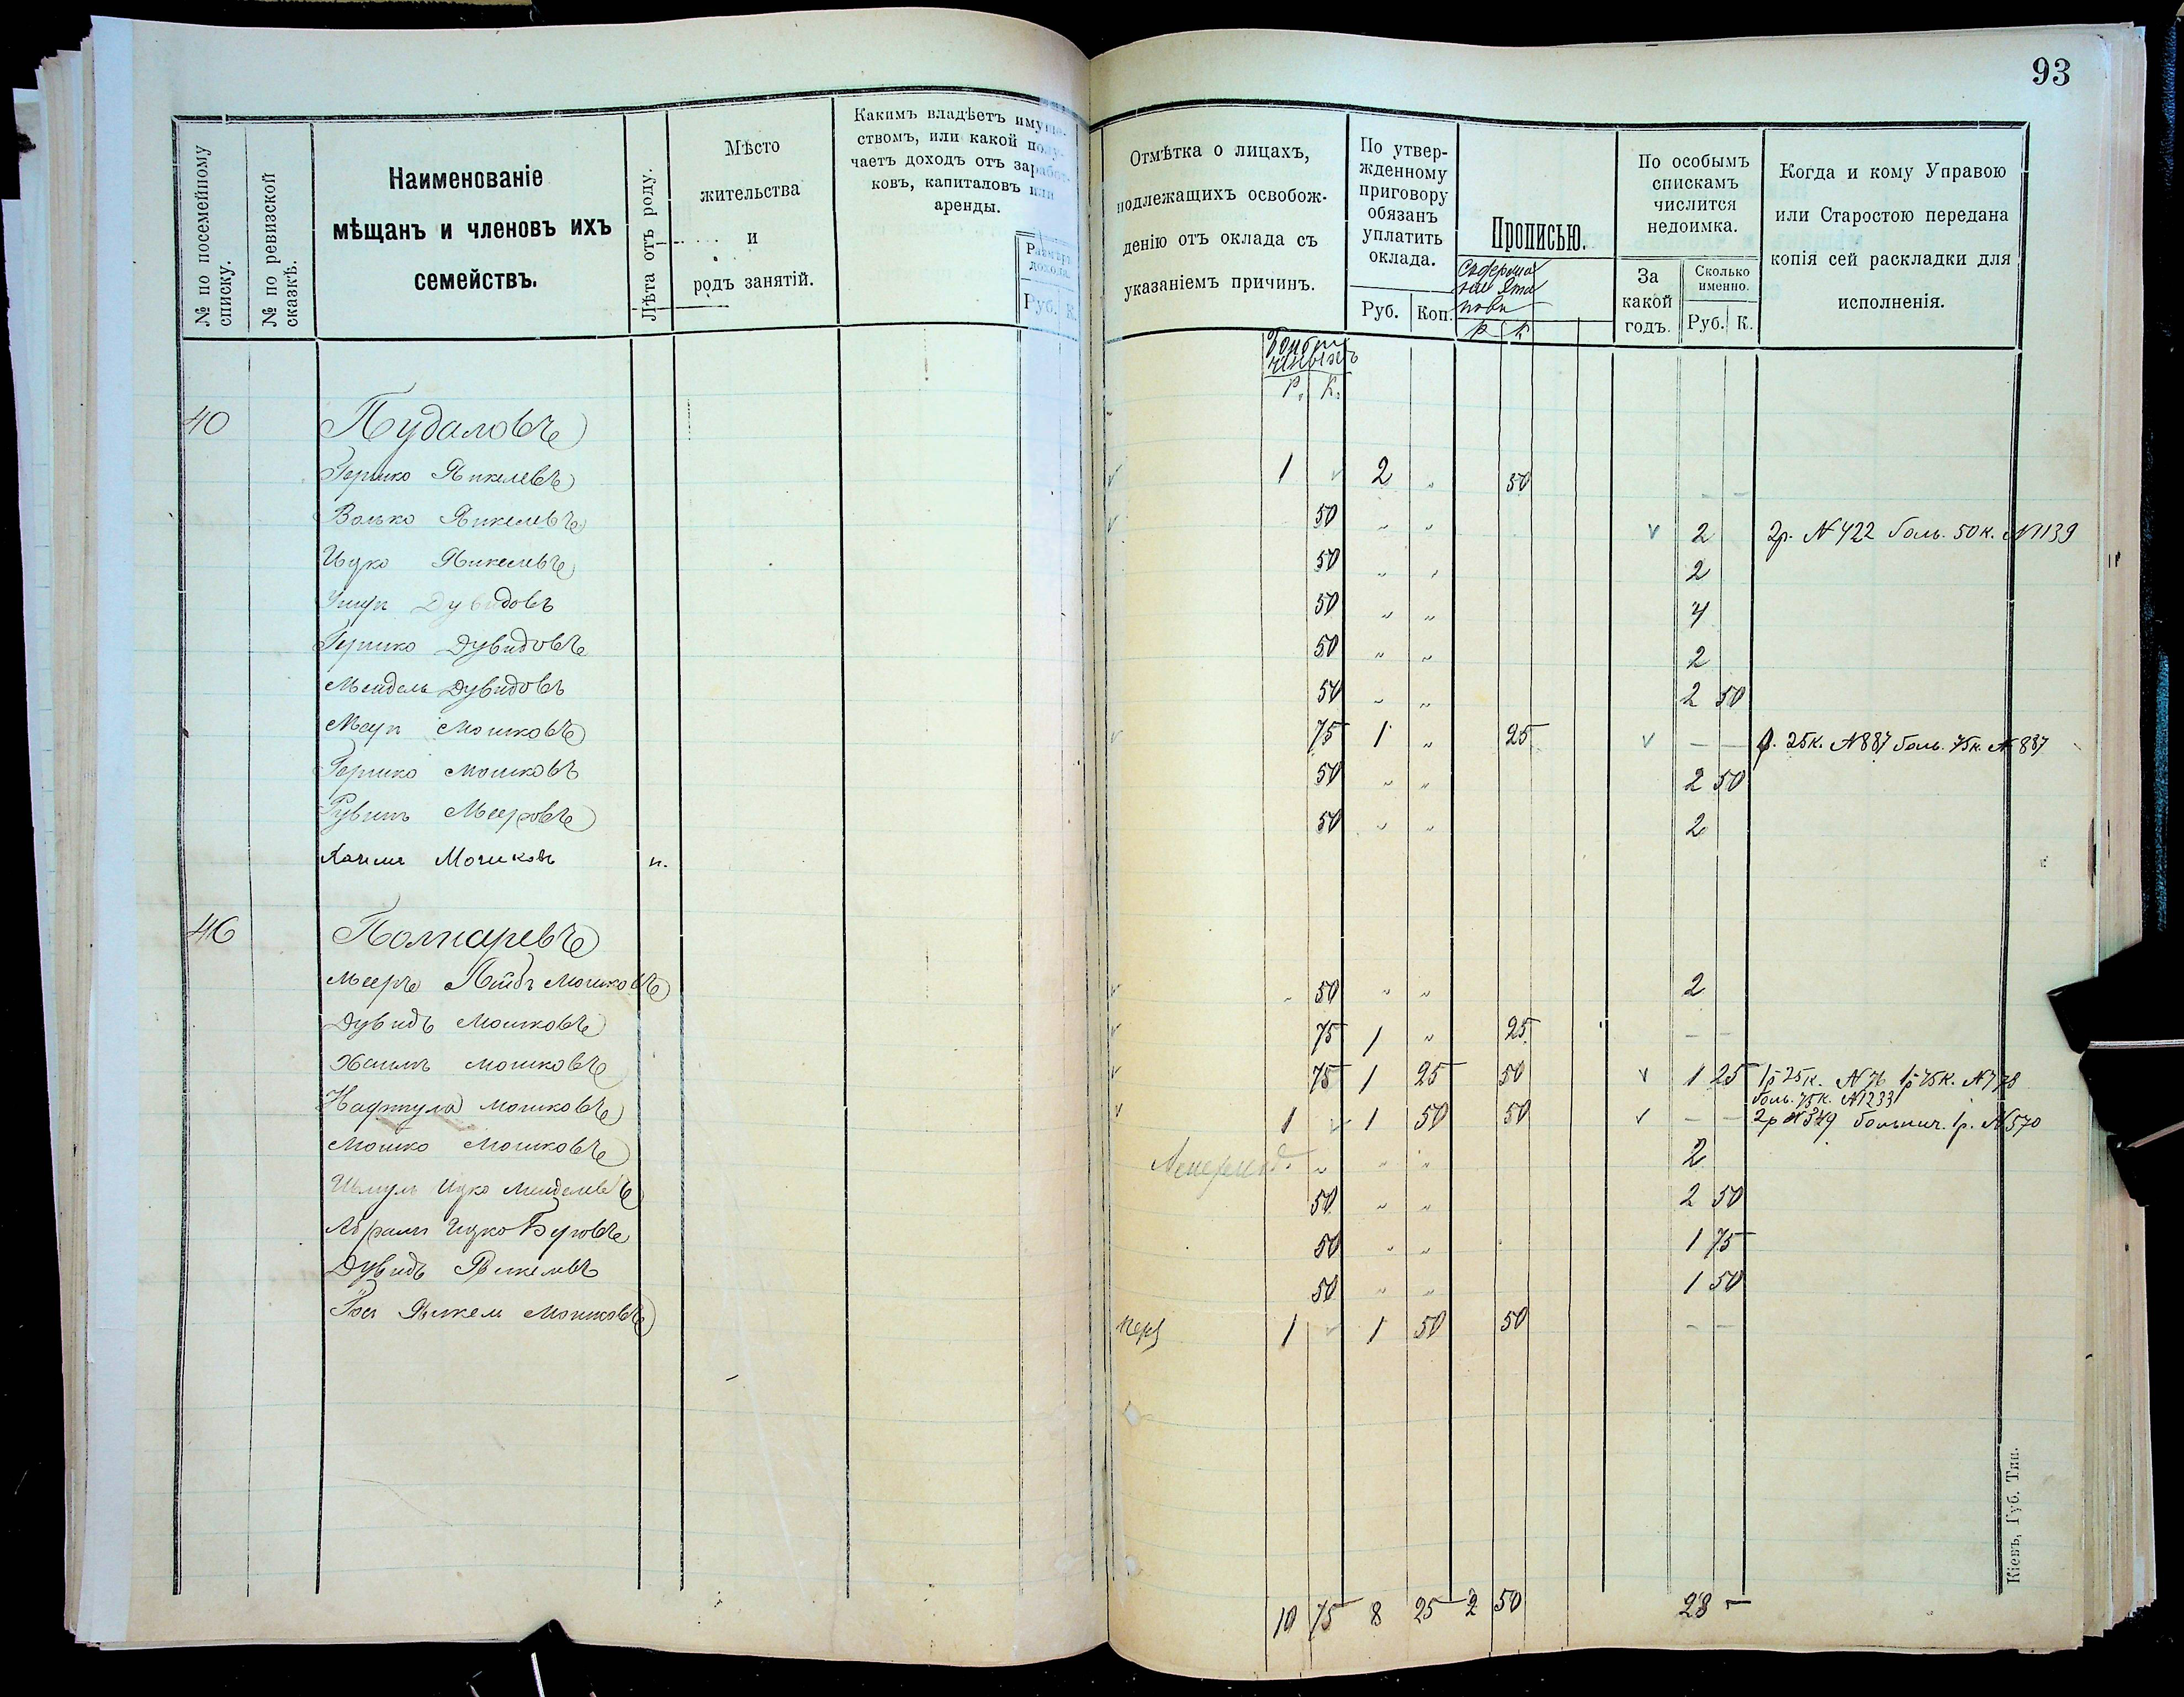 93
№ по посемейному списку.
№ по ревизской сказкѣ.
Наименованіе
мѣщанъ и членовъ ихъ
семействъ.
Лѣта отъ роду.
Мѣсто
жительства
и
родъ занятій.
Какимъ владѣетъ имуще-
ствомъ, или какой полу-
чаетъ доходъ отъ заработ-
ковъ, капиталовъ или
аренды.
Размѣръ дохода.
Руб. К.
Отмѣтка о лицахъ,
подлежащихъ освобож-
денію отъ оклада съ
указаніемъ причинъ.
По утвер-
жденному
приговору
обязанъ
уплатить
оклада.
Руб. Коп.
Прописью.
Р К
По особымъ
спискамъ
числится
недоимка.
За
какой
годъ.
Сколько
именно.
Руб. К.
Когда и кому Управою
или Старостою передана
копія сей раскладки для
исполненія.
Р. К.
40 Пудаловъ
Гершко Янкелевъ 1 2 „ 50 — —
Волько Янкелевъ 50 „ „ 2 2р. №422 боль. 50к. №1139
Ицко Янкелевъ 50 „ „ 2
Дувидовъ 50 „ „ 4
Гершко Дувидовъ 50 „ „ 2
Мендель Дувидовъ 50 „ „ 2 50
Мошковъ 75 1 „ 25 — — 25к. №887 боль. 75к. №887
Гершко Мошковъ 50 „ „ 2 50
Рувинъ Мееровъ 50 „ „ 2
Хаимъ Мошковъ н.
46 Полнаревъ
Мееръ Лейбъ Мошковъ „ 50 „ „ 2
Дувидъ Мошковъ 75 1 „ 25 — —
Хаимъ Мошковъ 75 1 25 50 1 25 1р 25к. №76 1р 75к. №778
боль. 75к. №1233
Нафтула Мошковъ 1 1 50 50 — — 2р №349 больнич. 1р. №570
Мошко Мошковъ „ „ „ 2
Шмуль Ицко Менделевъ 50 „ „ 2 50
Абрамъ Ицко Беровъ 50 „ „ 1 75
Дувидъ Янкелевъ 50 „ „ 1 50
Янкель Мошковъ 1 1 50 50 — —
10 75 8 25 2 50 28 —
Кіевъ, Губ. Тип.